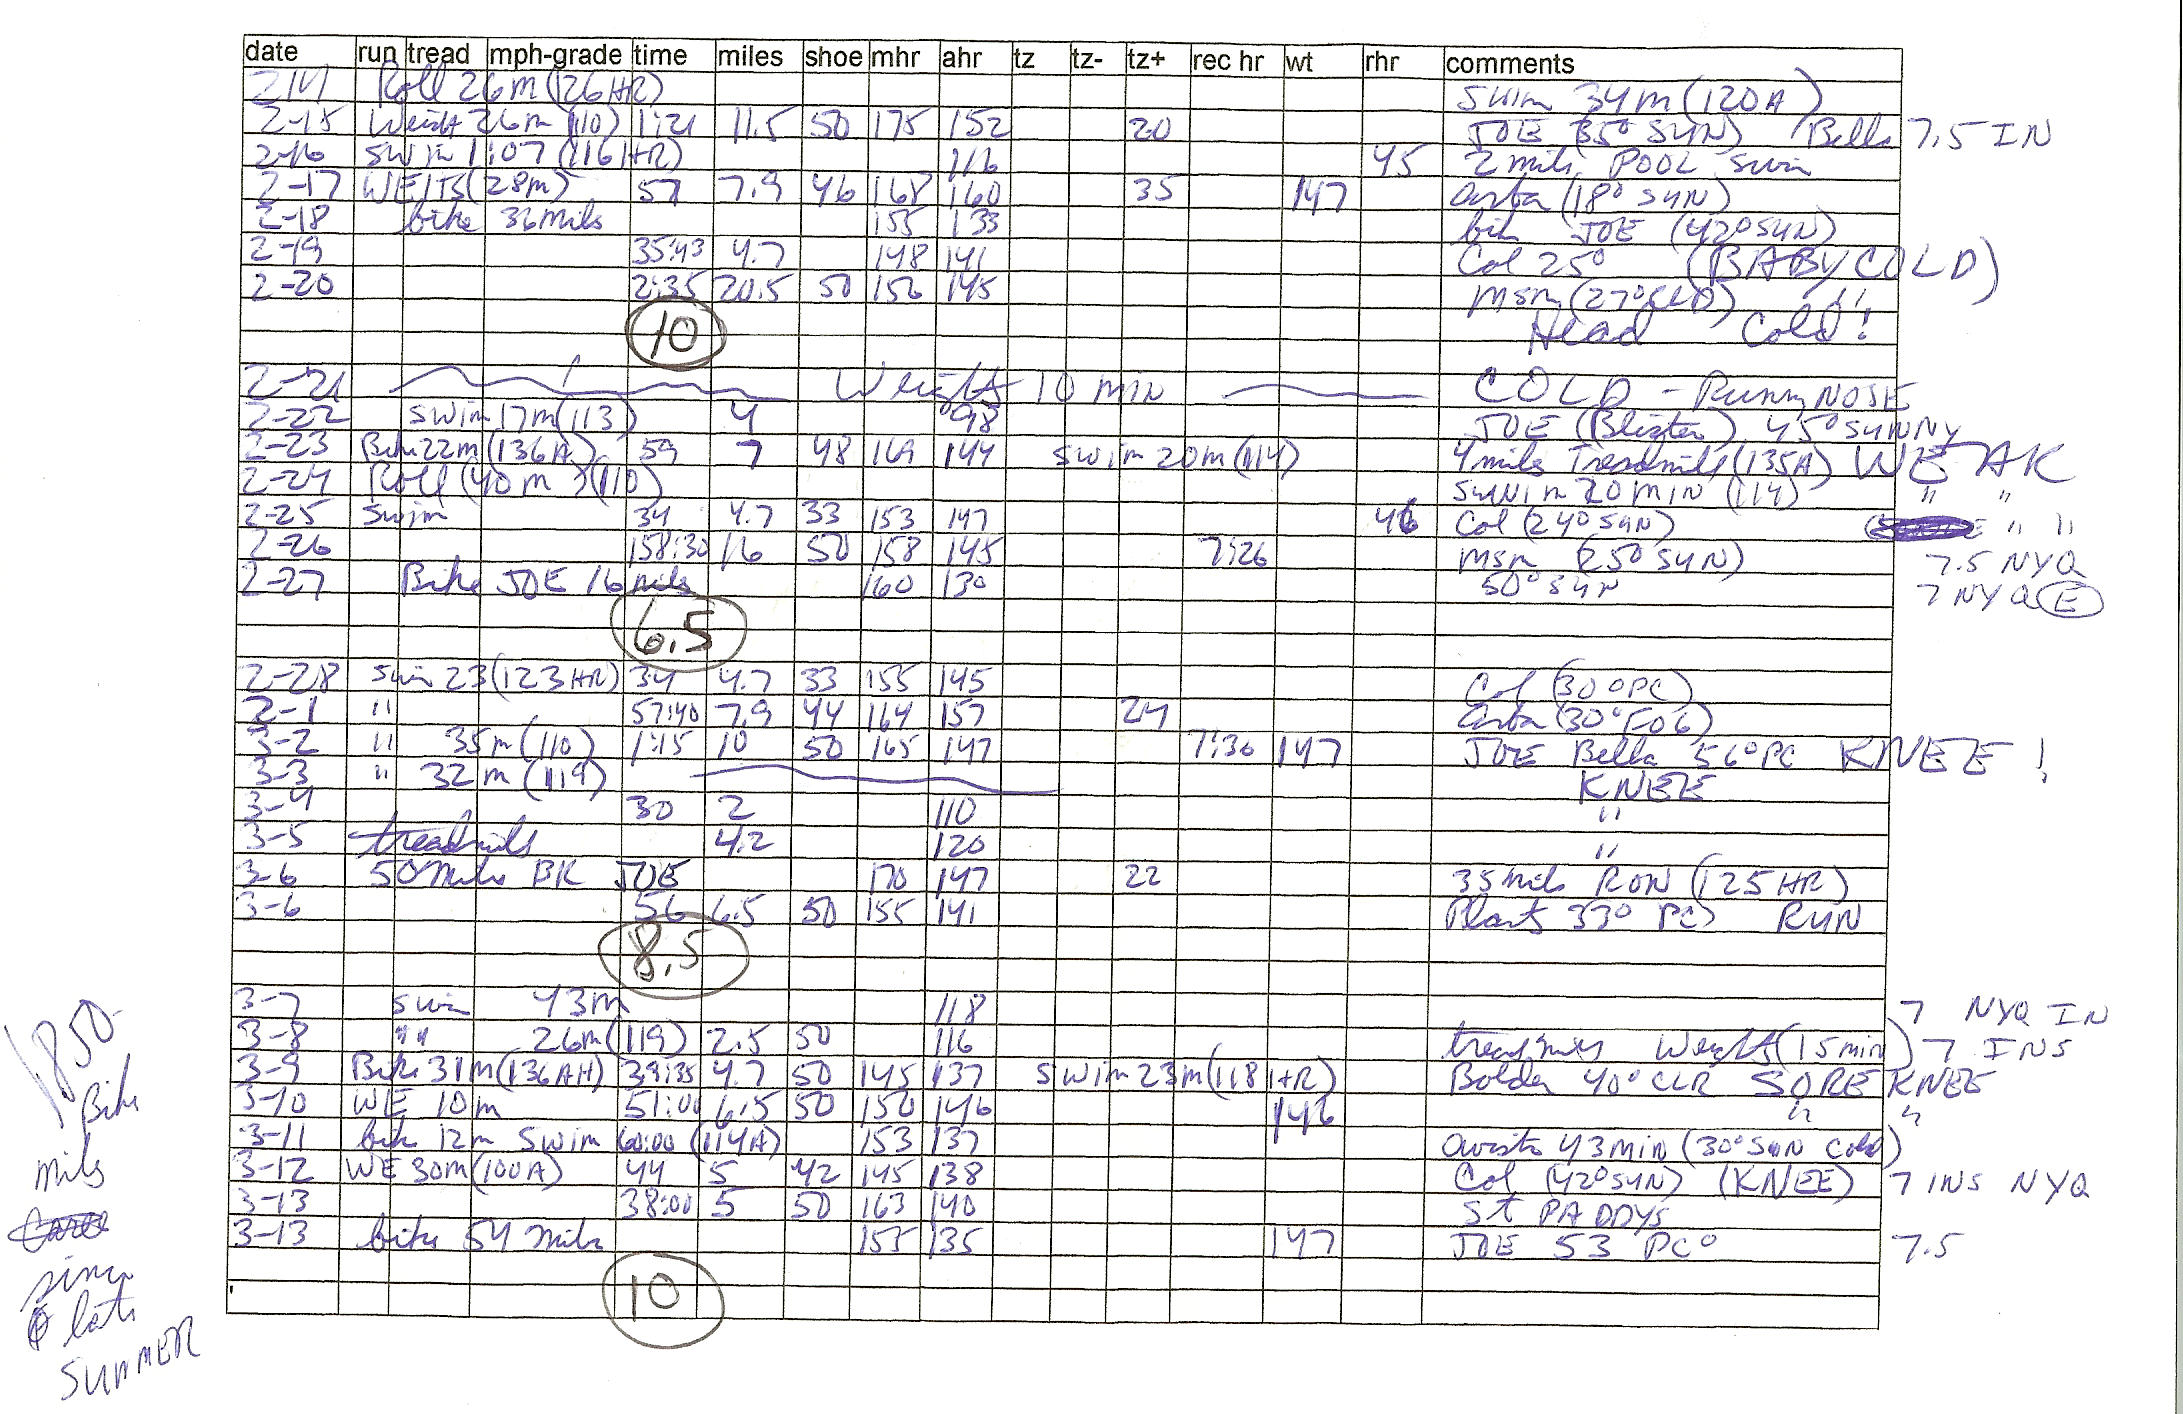 date run tread mph-grade time miles shoe mhr ahr tz tz- tz+ rec hr wt rhr comments
2-14 Roll 26m (126HR) Swim 34m (120A)
2-15 Weight 26m (110) 1:21 11.5 50 175 152 20 JOE (35° SUN) Bella 7.5 IN
2-16 Swim 1:07 (116HR) 116 45 2 mile POOL Swim
2-17 WEITS (28m) 57 7.9 46 168 160 35 147 (18° SUN)
2-18 bike 36 miles 155 133 bike JOE (42° SUN)
2-19 35:43 4.7 148 141 Col 25° (BABY COLD)
2-20 2:35 20.5 50 156 145 MSM (27° CLD) ''
10 Head Cold!
2-21 Weights 10 MIN COLD - Runny NOSE
2-22 Swim 17m (113) 4 98 JOE (Blister) 45° SUNNY
2-23 Bike 22m (136A) 59 7 48 169 144 Swim 20m (114) 4 miles Treadmill (135A) WEAK
2-24 Roll (40m) (110) SWIM 20 MIN (114) '' ''
2-25 Swim 34 4.7 33 153 147 46 Col (24° SUN) '' ''
2-26 158:30 16 50 158 145 7:26 MSM (25° SUN) 7.5 NYQ
2-27 Bike JOE 16 miles 160 130 50° SUN 7 NYQ (E)
6.5
2-28 Swim 23 (123HR) 34 4.7 33 155 145 Col (30° PC)
2-1 '' 57:40 7.9 44 164 157 24 (30° FOG)
3-2 '' 35m (110) 1:15 10 50 165 147 7:36 147 JOE Bella 56° PC KNEE!
3-3 '' 32m (119) KNEE
3-4 30 2 110 ''
3-5 treadmill 4.2 120 ''
3-6 50 Miles BK JOE 170 147 22 35 miles RON (125HR)
3-6 56 6.5 50 155 141 Plant 33° PC RUN
8.5
3-7 Swim 43m 118 7 NYQ IN
3-8 '' '' 26m (119) 2.5 50 116 Weights (15 min) 7 INS
3-9 Bike 31m (136AH) 39:35 4.7 50 145 137 Swim 23m (118HR) 40° CLR SORE KNEE
3-10 WE 10m 51:00 6.5 50 150 146 146 '' ''
3-11 bike 12m Swim 60:00 (114A) 153 137 43 min (30° SUN Cold)
3-12 WE 30m (100A) 44 5 42 145 138 Col (42° SUN) (KNEE) 7 INS NYQ
3-13 38:00 5 50 163 140 St PADDYS
3-13 bike 54 miles 155 135 147 JOE 53 PC° 7.5
10
1850
Bike
miles
since
late
SUMMER